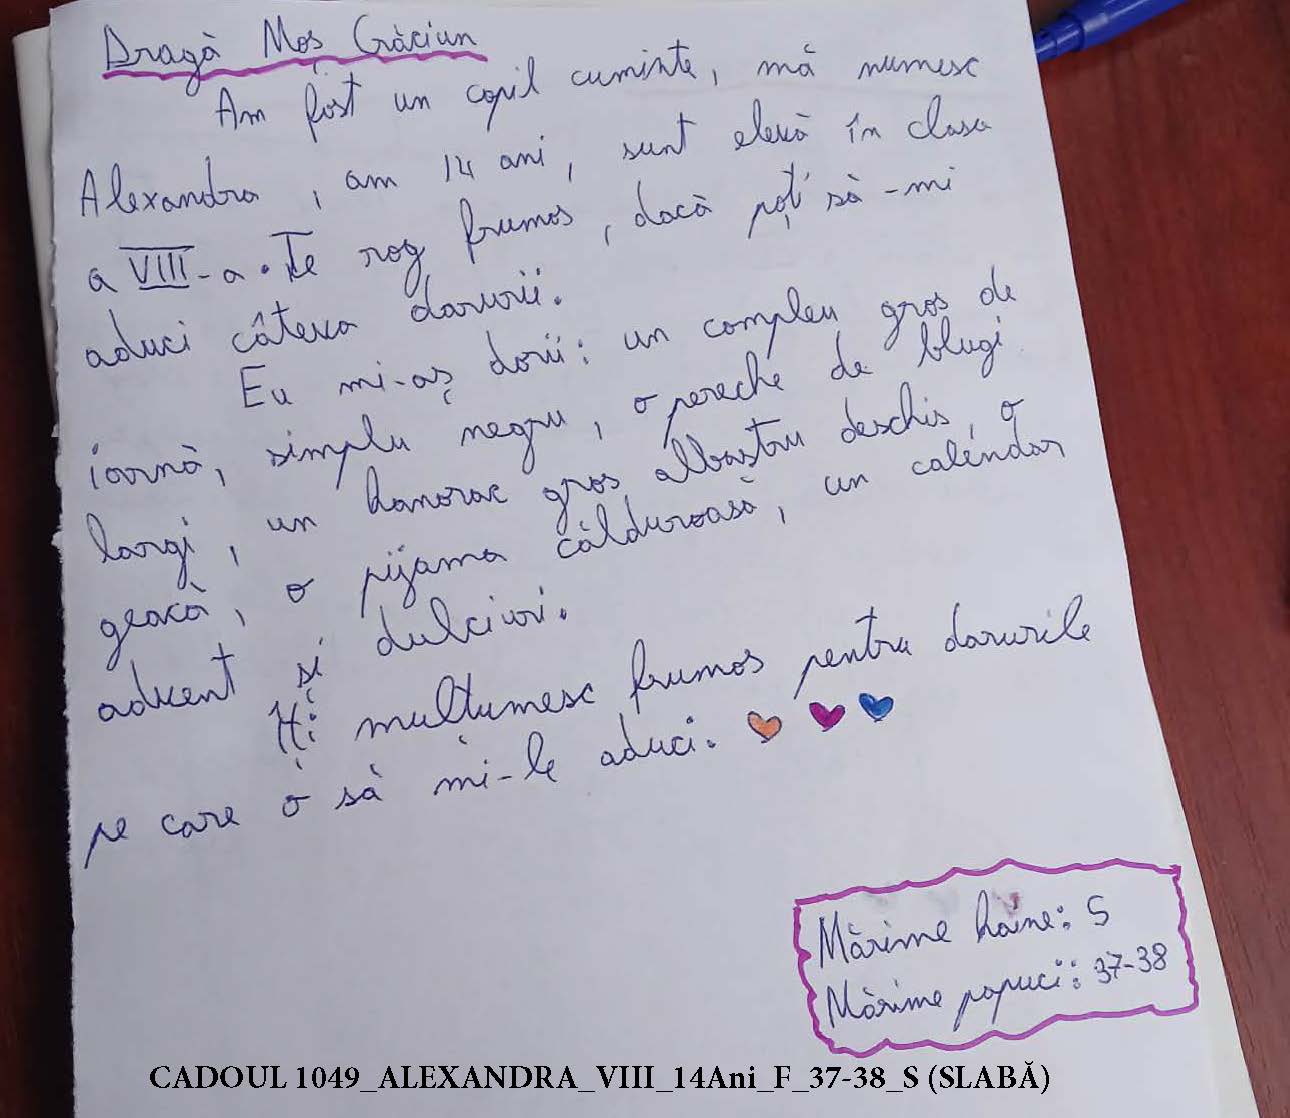 Dragă Moș Crăciun
Am fost un copil cuminte, mă numesc
Alexandra, am 14 ani, sunt elevă în clasa
a VIII-a. Te rog frumos, dacă poți să-mi
aduci câteva darurii.
Eu mi-aș dorii: un compleu gros de
iarnă, simplu negru, o pereche de blugi
largi, un hanorac gros albastru deschis, o
geacă, o pijama călduroasă, un calendar
advent și dulciuri.
Îți mulțumesc frumos pentru darurile
pe care o să mi-le aduci.
Mărime haine: S
Mărime papuci: 37-38
CADOUL 1049_ALEXANDRA_VIII_14Ani_F_37-38_S (SLABĂ)